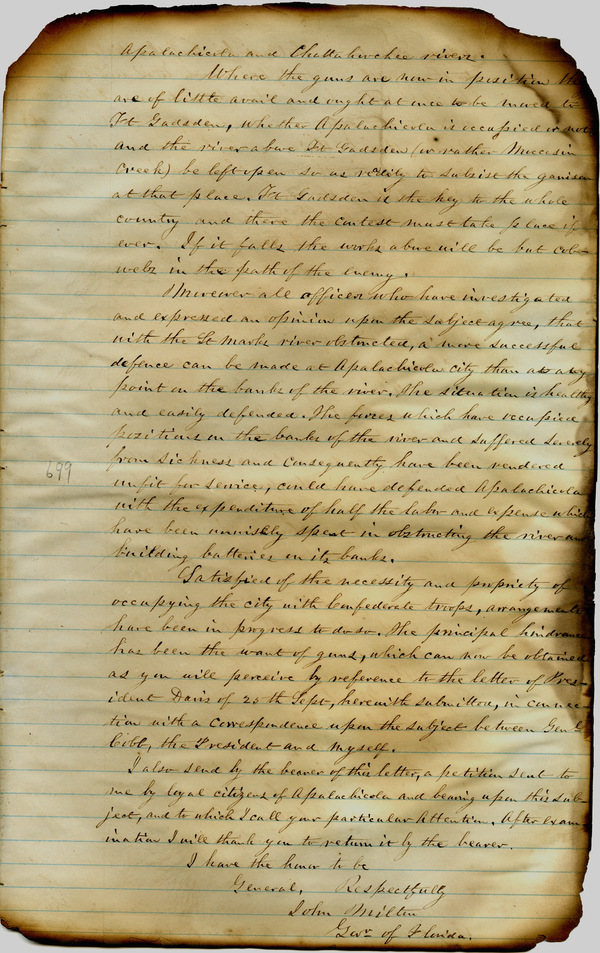 Apalachicola and Chattahoochee rivers.
Where the guns are now in position the
are of little avail and ought at once to be moved to
Ft Gadsden, whether Apalachicola is occupied or not
and the river above Ft Gadsden (or rather Moccasin
Creek) be left open so as to subsist the garrison
at that place. Ft Gadsden is the key to the whole
country and there the contest must take place if
ever. If it falls the works above will be but cob-
webs in the path of the enemy.
Moreover all officers who have investigated
and expressed an opinion upon the subject agree, that
with the St Marks river obstructed, a more successful
defence can be made at Apalachicola city than at any
point on the banks of the river. The situation is healthy
and easily defended. The forces which have occupied
positions on the banks of the river and suffered severely
from sickness and consequently have been rendered
unfit for service, could have defended Apalachicola
with the expenditure of half the labor and expense which
have been unwisely spent in obstructing the river and
building batteries on its banks.
Satisfied of the necessity and propriety of
occupying the city with Confederate troops, arrangements
have been in progress to do so. The principal hindrance
has been the want of guns, which can now be obtained
as you will perceive by reference to the letter of Pres-
ident Davis of 25th Sept, herewith submitted, in connec-
tion with a correspondence upon the subject between Genl
Cobb, the President and myself.
I also send by the bearer of this letter, a petition sent to
me by loyal citizens of Apalachicola and bearing upon this sub-
ject, and to which I call your particular Attention. After exam-
ination I will thank you to return it by the bearer.
I have the honor to be
General, Respectfully
John Milton
Govr of Florida.
699